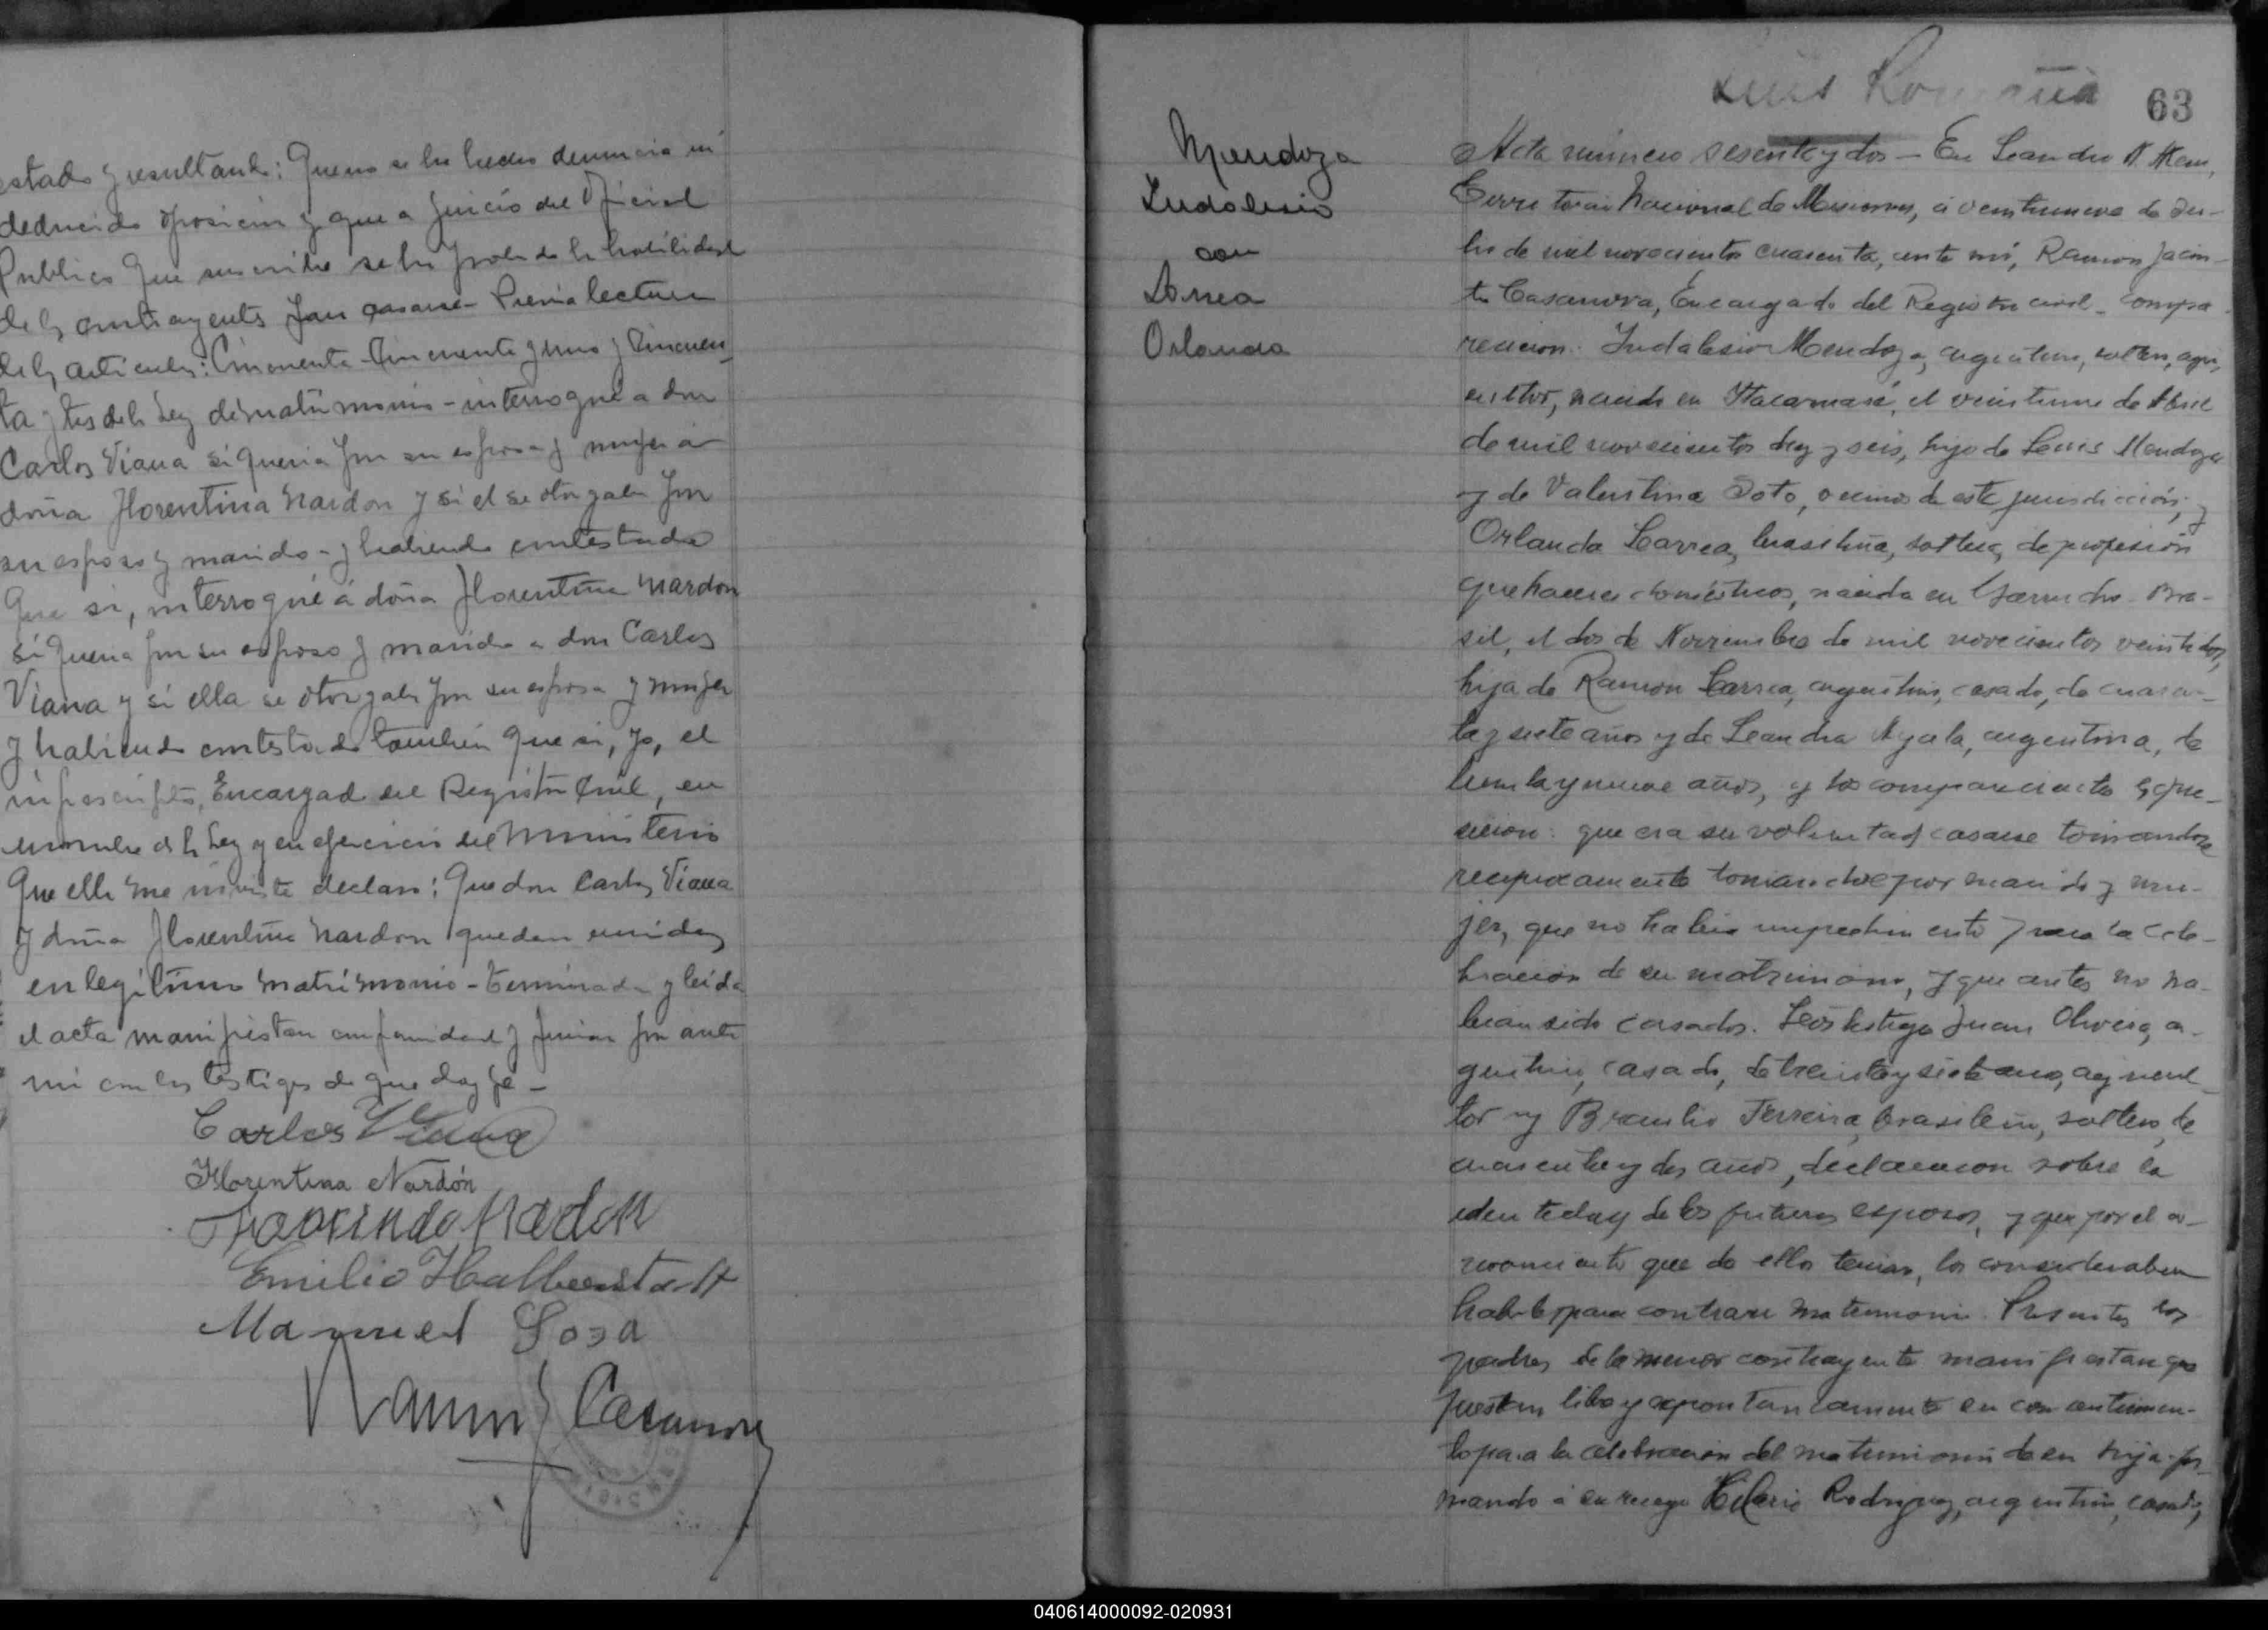 estado y resultando: Que no se ha hecho denuncia ni
deducido oposición y que a juicio del Oficial
Publico que suscribe se ha probado la habilidad
de los contrayentes para casarse - Previa lectura
de los artículos: Cincuenta Cincuenta y uno y Cincuen-
ta y tres de la Ley de matrimonio - interrogué a don
Carlos Viana si queria por su esposa y mujer a
doña Florentina Nardon y si el se otorgaba por
su esposo y marido - y habiendo contestado
Que si, interrogué á doña Florentina Nardon
si queria por su esposo y marido a don Carlos
Viana y si ella se otorgaba por su esposa y mujer
y habiendo contestado también que si, yo, el
infrascripto, Encargado del Registro Civil, en
nombre de la Ley y en ejercicio del Ministerio
Que ella me inviste declaro: Que don Carlos Viana
y doña Florentina Nardon quedan unidos
en legítimo matrimonio - Terminada y leída
el acta manifiestan conformidad y firman por ante
mi con los testigos de que doy fe -
Carlos Viana
Florentina Nardón
Nardon
Emilio Halberstadt
Manuel Sosa
Ramon J Casanova
Luis
63
Mendoza
Indalesio
con
Larrea
Orlanda
Acta número sesenta y dos - En Leandro N. Alem,
Territorio Nacional de Misiones, á veintinueve de Ju-
lio de mil novecientos cuarenta, ante mí, Ramon Jacin-
to Casanova, Encargado del Registro civil - compa-
recieron: Indalesio Mendoza, argentino, soltero, agri-
cultor, nacido en Itacaruaré, el veintiuno de Abril
de mil novecientos diez y seis, hijo de Luis Mendoza
y de Valentina Soto, vecinos de esta jurisdicción; y
Orlanda Larrea, brasileña, soltera, de profesión
quehaceres domésticos, nacida en Garruchos - Bra-
sil, el dos de Noviembre de mil novecientos veintidos,
hija de Ramon Larrea, argentino, casado, de cuaren-
ta y siete años y de Leandra Ayala, argentina, de
treinta y nueve años, y los comparecientes expu-
sieron: que era su voluntad casarse tomandose
reciprocamente tomandose por marido y mu-
jer, que no habia impedimento para la cele-
bración de su matrimonio, y que antes no ha-
bian sido casados. Los testigos Juan Olivera, ar-
gentino, casado, de treinta y siete años, agricul-
tor y Braulio Ferreira, brasileño, soltero, de
cuarenta y dos años, declararon sobre la
identidad de los futuros esposos, y que por el co-
nocimiento que de ellos tenian, los consideraban
habiles para contraer matrimonio. Presentes los
padres de la menor contrayente manifiestan que
prestan libre y espontaneamente su consentimien-
to para la celebración del matrimonio de su hija fir-
mando á su ruego Hilario Rodriguez, argentino, casado,
040614000092-020931